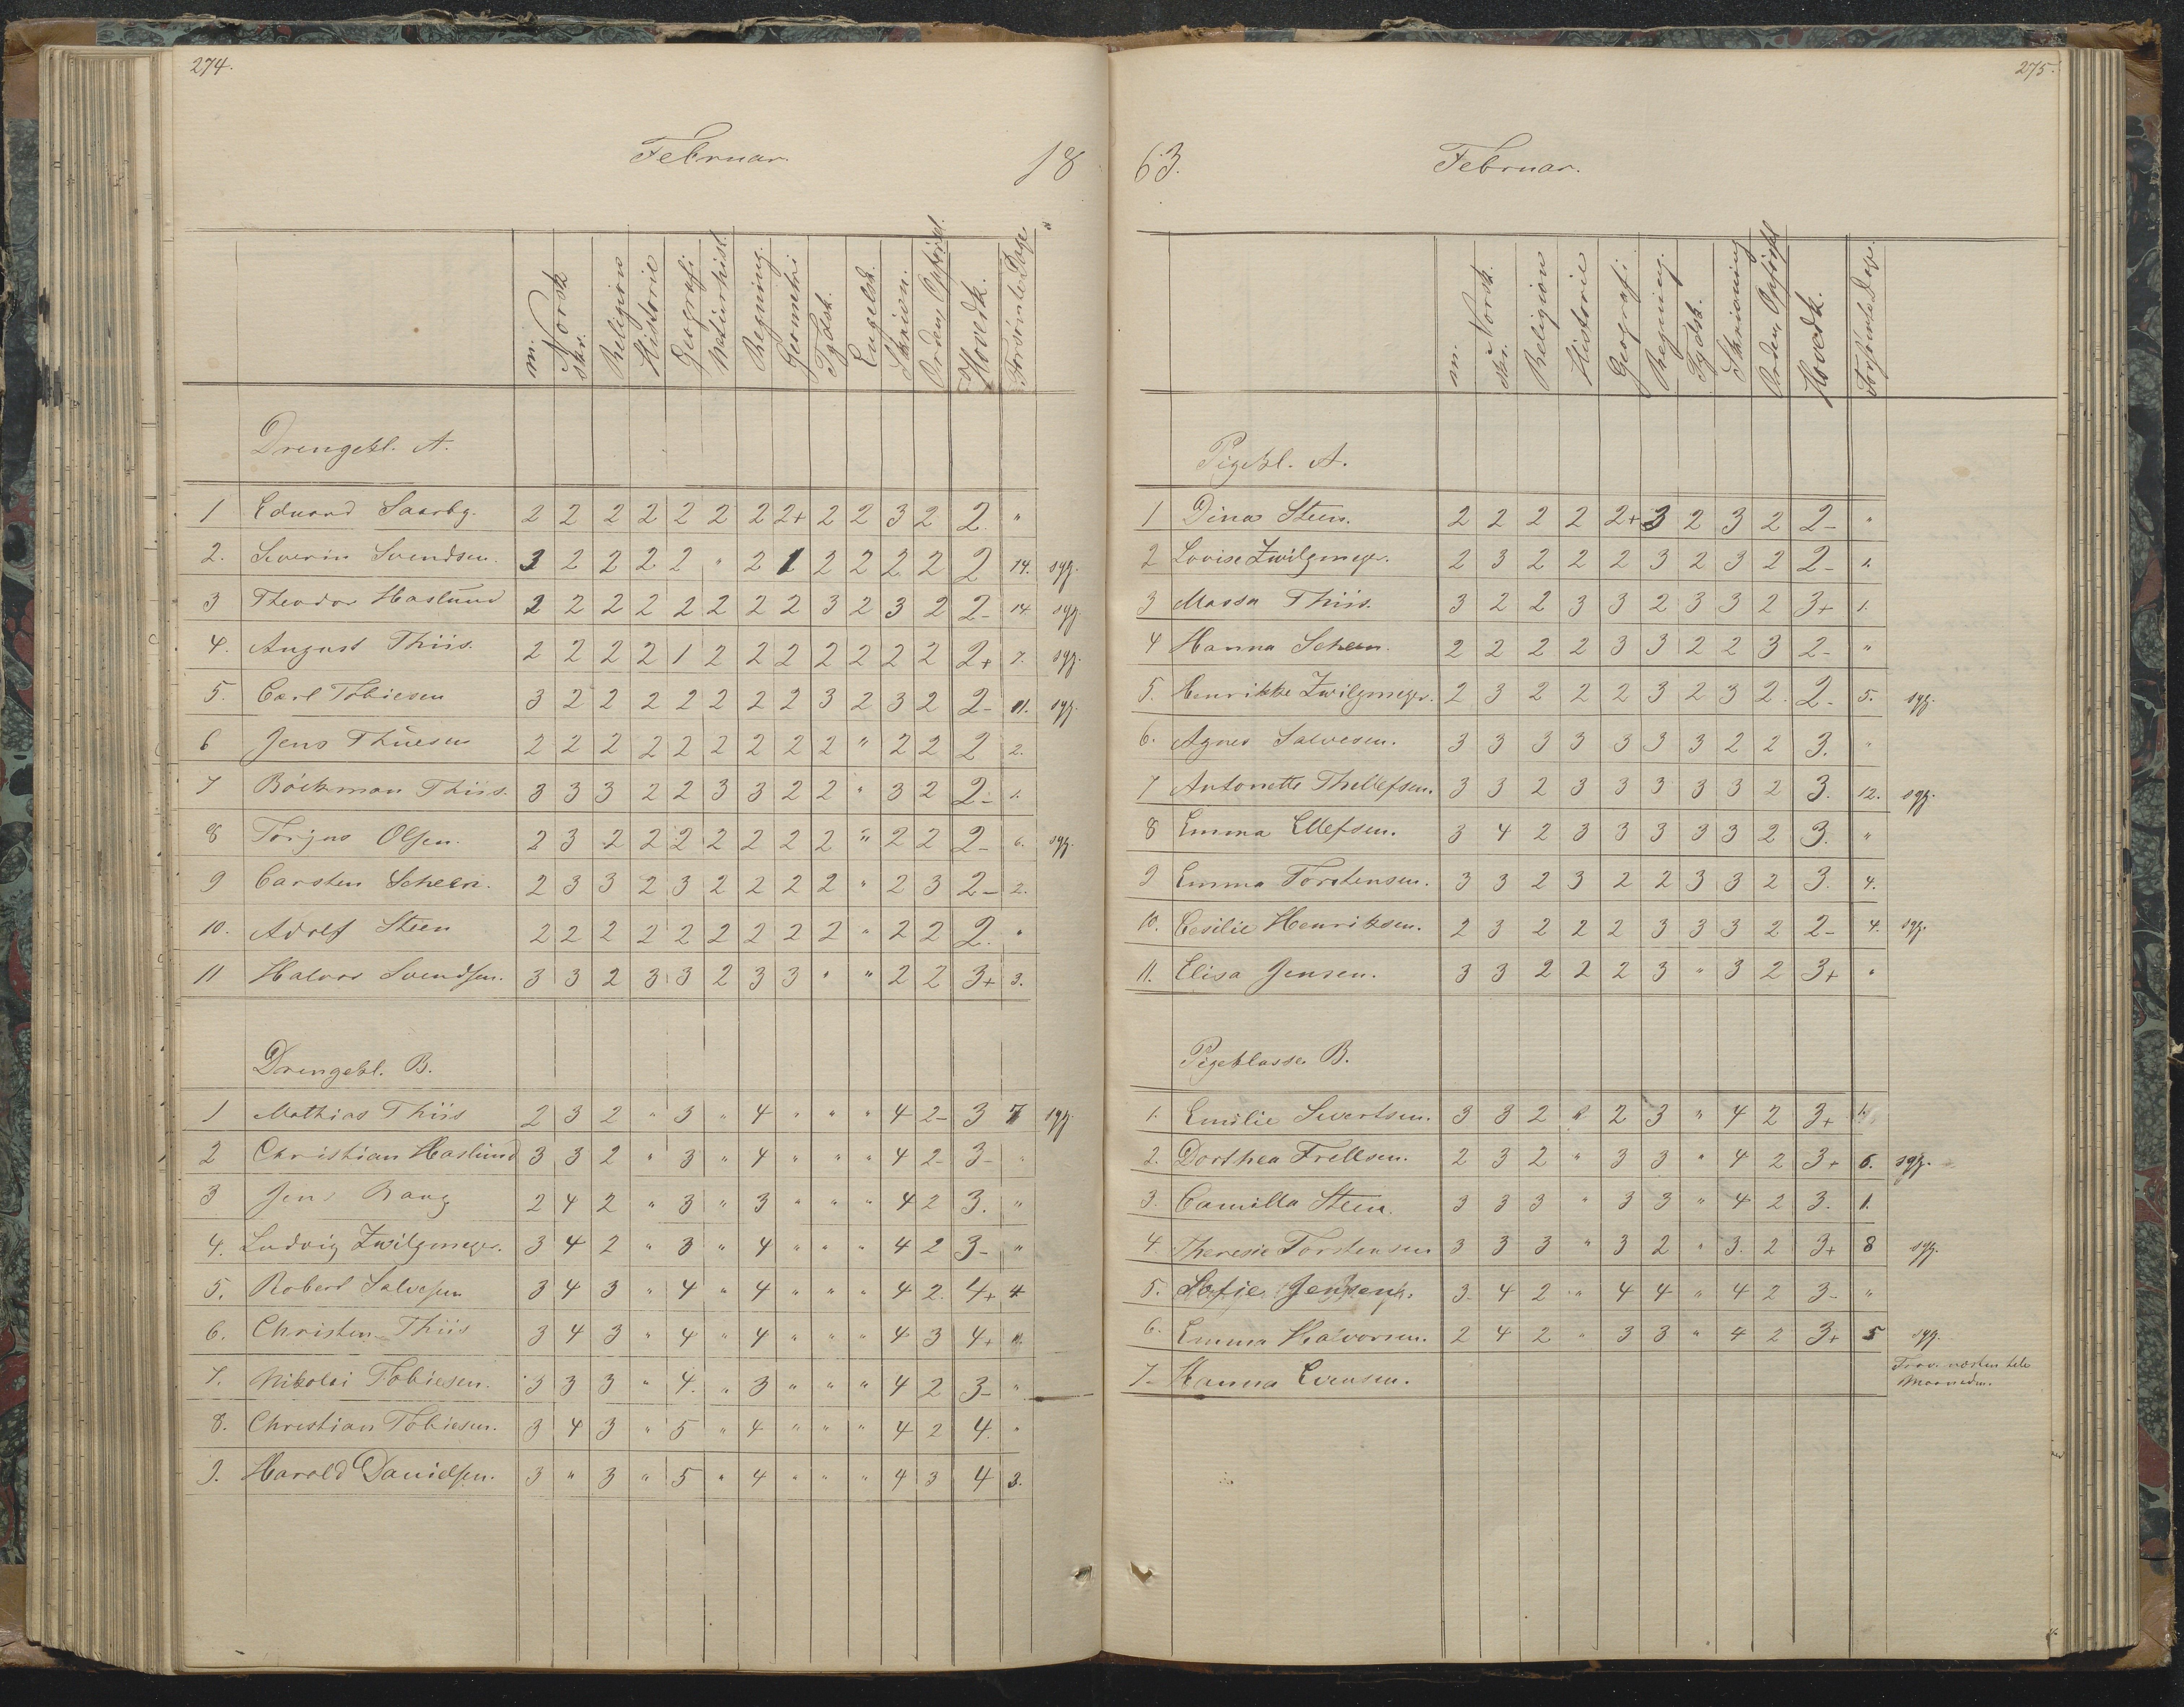 274.
Februar.
18
m. Norsk skr. Religion Historie Geografi Naturhist. Regning Geometri Tydsk. Engelsk. Skrivn. Orden Opførsel. Hovedk. Forsømte Dage
Drengekl. A.
1 Eduard Saarbg. 2 2 2 2 2 2 2 2+ 2 2 3 2 2. "
2. Severin Svendsen. 3 2 2 2 2 " 2 1 2 2 2 2 2 14. syg.
3 Theodor Haslund 2 2 2 2 2 2 2 2 3 2 3 2 2- 14 syg.
4. August Thiis. 2 2 2 2 1 2 2 2 2 2 2 2 2+ 7. syg.
5. Carl Tobiesen 3 2 2 2 2 2 2 2 3 2 3 2 2- 11. syg.
6 Jens Thuesen 2 2 2 2 2 2 2 2 2 " 2 2 2 2.
7 Böckman Thiis. 3 3 3 2 2 3 3 2 2 " 3 2 2- 1.
8 Torjus Olsen. 2 3 2 2 2 2 2 2 2 " 2 2 2- 6. syg.
9 Carsten Scheen. 2 3 3 2 3 2 2 2 2 " 2 3 2- 2.
10. Adolf Steen 2 2 2 2 2 2 2 2 2 " 2 2 2. "
11 Halvor Svendsen. 3 3 2 3 3 2 3 3 " " 2 2 3+ 3.
Drengekl. B.
1 Mathias Thiis 2 3 2 " 3 " 4 " " " 4 2- 3 7 syg.
2 Christian Haslund 3 3 2 " 3 " 4 " " " 4 2- 3- "
3 Jens Bang 2 4 2 " 3 " 3 " " " 4 2 3. "
4. Ludvig Zwilgmeyer. 3 4 2 " 3 " 4 " " " 4 2 3- "
5. Robert Salvesen 3 4 3 " 4 " 4 " " " 4 2. 4+ 4
6. Christen Thiis 3 4 3 " 4 " 4 " " " 4 3 4+
7. Nikolai Tobiesen. 3 3 3 " 4. " 3 " " " 4 2 3- "
8. Christian Tobiesen. 3 4 3 " 5 " 4 " " " 4 2 4. "
9. Harald Danielsen. 3 " 3 " 5 " 4 " " " 4 3 4 3.
275.
63.
Februar.
m. Norsk. skr. Religion Historie Geografi Regning. Tydsk. Skrivning Orden Opførsel Hovedk. Forsømte Dage.
Pigekl. A.
1 Dina Steen. 2 2 2 2 2+ 3 2 3 2 2- "
2 Lovise Zwilgmeyer. 2 3 2 2 2 3 2 3 2 2- 1.
3 Massa Thiis. 3 2 2 3 3 2 3 3 2 3+ 1.
4 Hanna Scheen. 2 2 2 2 3 3 2 2 3 2- "
5. Henrikke Zwilgmeyer. 2 3 2 2 2 3 2 3 2. 2- 5. syg.
6. Agnes Salvesen. 3 3 3 3 3 3 3 2 2 3. "
7 Antonette Thellefsen. 3 3 2 3 3 3 3 3 2 3. 12. syg.
8 Emma Ellefsen. 3 4 2 3 3 3 3 3 2 3. "
9 Emma Torstensen. 3 3 2 3 2 2 3 3 2 3. 4.
10. Cesilie Henriksen. 2 3 2 2 2 3 3 3 2 2- 4. syg.
11. Elisa Jensen. 3 3 2 2 2 3 " 3 2 3+ "
Pigeklasse B.
1. Emilie Sivertsen. 3 3 2 " 2 3 " 4 2 3+ 1.
2. Dorthea Frellsen. 2 3 2 " 3 3 " 4 2 3+ 6. syg.
3. Camilla Steen. 3 3 3 " 3 3 " 4 2 3. 1.
4. Theresie Torstensen 3 3 3 " 3 2 " 3. 2 3+ 8 syg.
5. Sofie Jensen. 3- 4 2 " 4 4 " 4 2 3- "
6. Emma Halvorsen. 2 4 2 " 3 3 " 4 2 3+ 5 syg.
7. Hanna Evensen. Fors. næsten hele
Maaneden.